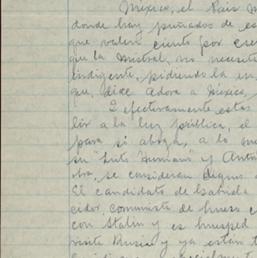 México, el País M
donde hay puñados de es
que valen ciento por cien
que la Mistral, no necesita
indigente, pidiendo la un
que, dice Adora a México,
E efectivamente estas
lir a la luz pública, el
para si abraza, a lo me
su "Luto Humano" y Anto
oba, se consideran dignos
El candidato de Isabrida
cidos, comunista de hueso c
con Stalin y es huesped
visitó Rusia y ya están t